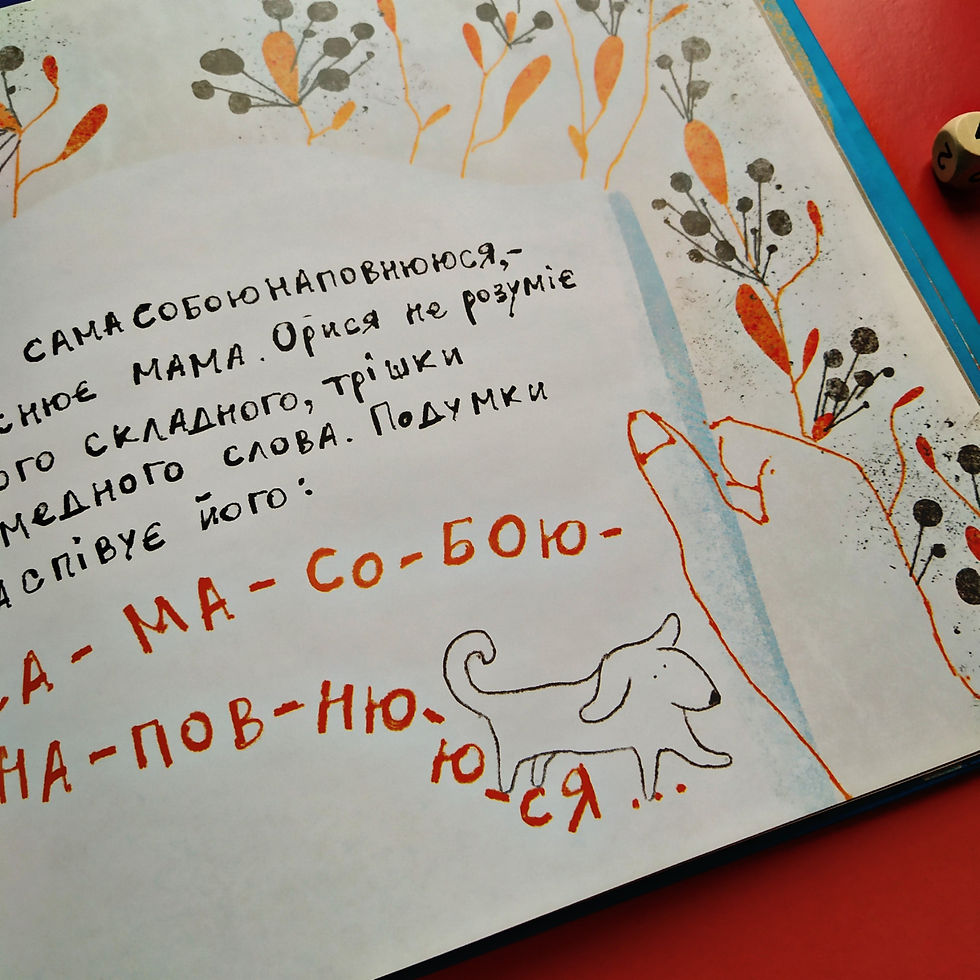 САМАСОБОЮНАПОВНЮЮСЯ,-
снює МАМА. Орися не розуміє
ого складного, трішки
медного слова. Подумки
аспівує його:
СА-МА-СО-БОЮ-
НА-ПОВ-НЮ-
Ю
-СЯ...